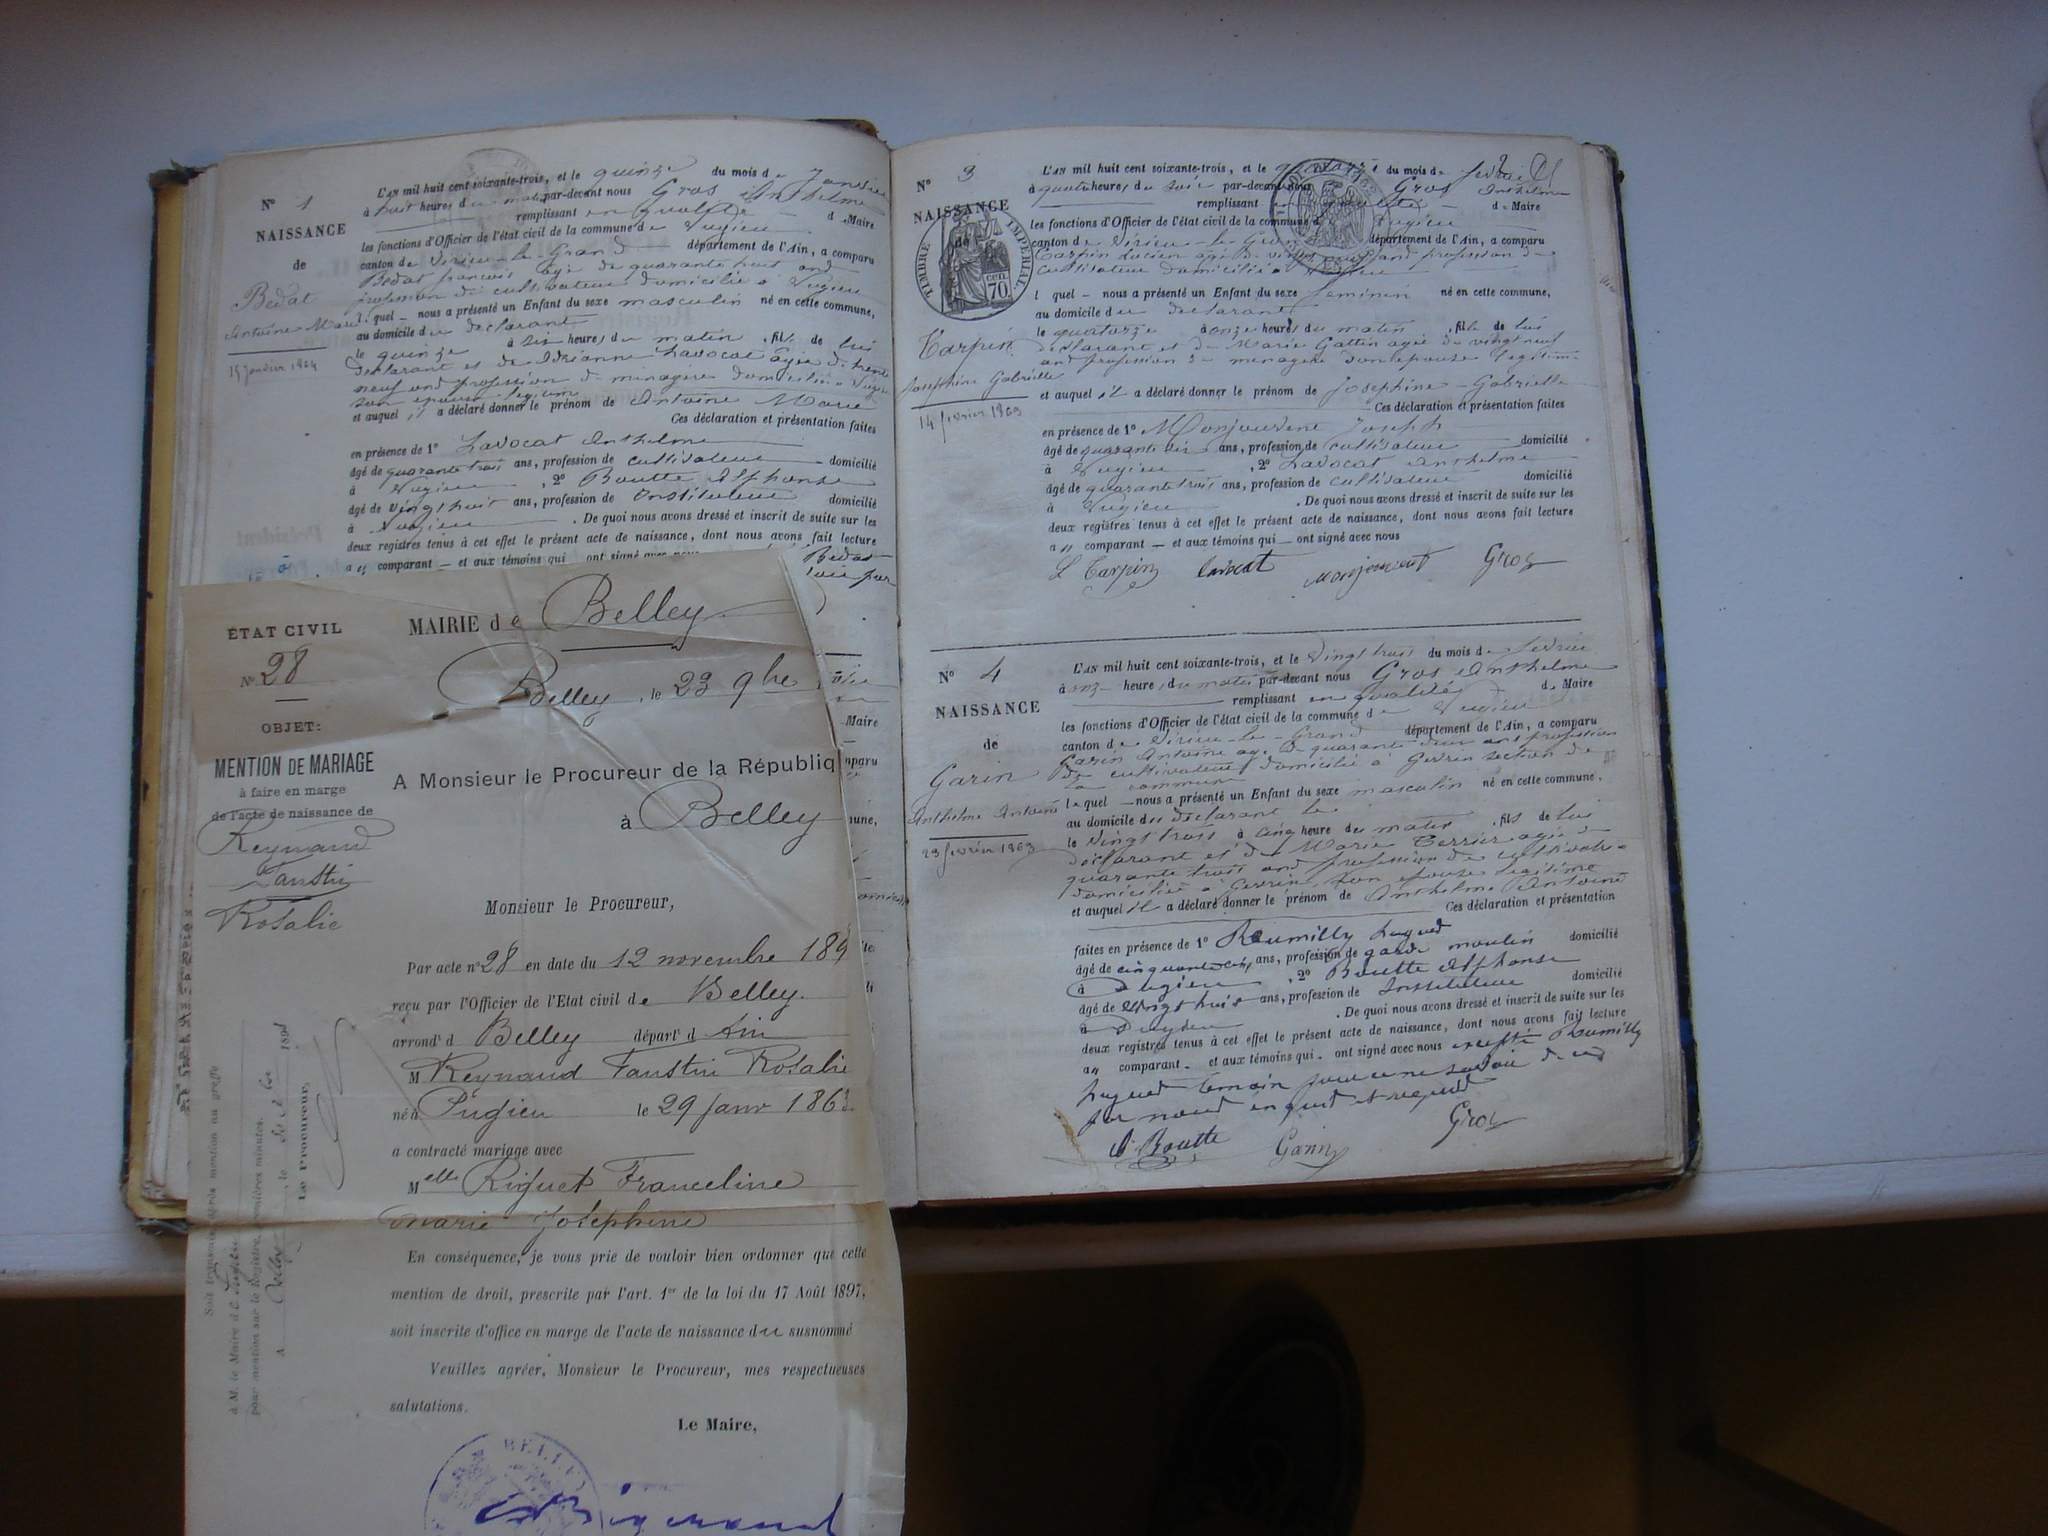 N° 1
NAISSANCE
de
Bedat
Antoine Marie
15 janvier 1864
L'AN mil huit cent soixante-trois, et le quinze du mois de Janvier
à huit heures du matin par-devant nous Gros Anthelme
remplissant en qualité de Maire
les fonctions d'Officier de l'état civil de la commune de Pugieu
canton de Virieu-le-Grand département de l'Ain, a comparu
Bedat françois âgé de quarante huit ans
profession de cultivateur domicilié à Pugieu
lequel nous a présenté un Enfant du sexe masculin né en cette commune,
au domicile du declarant
le quinze à six heures du matin, fils de lui
déclarant et de Lavocat âgée de trente
neuf ans profession de ménagère domiciliée à Pugieu
son epouse legitime
et auquel il a déclaré donner le prénom de Antoine Marie
Ces déclaration et présentation faites
en présence de 1° Lavocat Anthelme
âgé de quarante trois ans, profession de cultivateur domicilié
à Pugieu, 2° Boutte Alphonse
âgé de vingt huit ans, profession de Instituteur domicilié
à Pugieu. De quoi nous avons dressé et inscrit de suite sur les
deux registres tenus à cet effet le présent acte de naissance, dont nous avons fait lecture
au comparant et aux témoins qui ont signé avec nous
Bedat
ETAT CIVIL
N° 28
OBJET:
MENTION DE MARIAGE
à faire en marge
de l'acte de naissance de
Reynaud
Faustin
Rosalie
MAIRIE de Belley
Belley, le 23 9bre
A Monsieur le Procureur de la Républiq
à Belley
Monsieur le Procureur,
Par acte n° 28 en date du 12 novembre 189
reçu par l'Officier de l'Etat civil de Belley.
arrondt d Belley départt d Ain
M Reynaud Faustin Rosalie
né à Pugieu le 29 janv 1863
a contracté mariage avec
Melle Riguet Franceline
Marie Josephine
En conséquence, je vous prie de vouloir bien ordonner que cette
mention de droit, prescrite par l'art. 1er de la loi du 17 Août 1897,
soit inscrite d'office en marge de l'acte de naissance du susnommé
Veuillez agréer, Monsieur le Procureur, mes respectueuses
salutations.
Le Maire,
BELLEY
Soit transmis, après mention au greffe
à M. le Maire de Pugieu
pour mention sur le Registre, dernières minutes.
A Belley, le
Le Procureur,
N° 3
NAISSANCE
de
TIMBRE IMPERIAL
70 cen.
Tarpin
Josephine Gabrielle
14 février 1863
L'AN mil huit cent soixante-trois, et le quatorze du mois de fevrier
à quatre heures du soir par-devant nous Gros Anthelme
remplissant en qualité de Maire
les fonctions d'Officier de l'état civil de la commune de Pugieu
canton de Virieu-le-Grand département de l'Ain, a comparu
Tarpin Lucien âgé de vingt ans profession de
cultivateur domicilié à Pugieu
lequel nous a présenté un Enfant du sexe feminin né en cette commune,
au domicile du declarant
le quatorze à onze heures du matin, fille de lui
déclarant et de Marie Gattin agée de vingt neuf
ans profession de menagere son epouse legitime
et auquel il a déclaré donner le prénom de Josephine-Gabrielle
Ces déclaration et présentation faites
en présence de 1° Joseph
âgé de quarante six ans, profession de cultivateur domicilié
à Pugieu, 2° Lavocat Anthelme
âgé de quarante trois ans, profession de cultivateur domicilié
à Pugieu. De quoi nous avons dressé et inscrit de suite sur les
deux registres tenus à cet effet le présent acte de naissance, dont nous avons fait lecture
au comparant et aux témoins qui ont signé avec nous
L Tarpin Lavocat Gros
N° 4
NAISSANCE
de
Garin
Anthelme Antoine
23 février 1863
L'AN mil huit cent soixante-trois, et le vingt trois du mois de fevrier
à onze heures du matin par-devant nous Gros Anthelme
remplissant en qualité de Maire
les fonctions d'Officier de l'état civil de la commune de Pugieu
canton de Virieu-le-Grand département de l'Ain, a comparu
Garin Antoine agé de quarante deux ans profession
de cultivateur domicilié à section de
la commune
lequel nous a présenté un Enfant du sexe masculin né en cette commune,
au domicile du declarant le
le vingt trois à cinq heures du matin, fils de lui
déclarant et de Marie Terrier agée de
quarante trois ans profession de cultivatrice
domiciliée à son epouse legitime
et auquel il a déclaré donner le prénom de Anthelme Antoine
Ces déclaration et présentation
faites en présence de 1° Roumilly hugues
âgé de cinquante ans, profession de garde moulin domicilié
à Pugieu, 2° Boutte Alphonse
âgé de vingt huit ans, profession de Instituteur domicilié
à Pugieu. De quoi nous avons dressé et inscrit de suite sur les
deux registres tenus à cet effet le présent acte de naissance, dont nous avons fait lecture
au comparant et aux témoins qui ont signé avec nous excepté Roumilly
hugues temoin pour ne savoir de ce
par nous enquis et requis
A Boutte Garin Gros